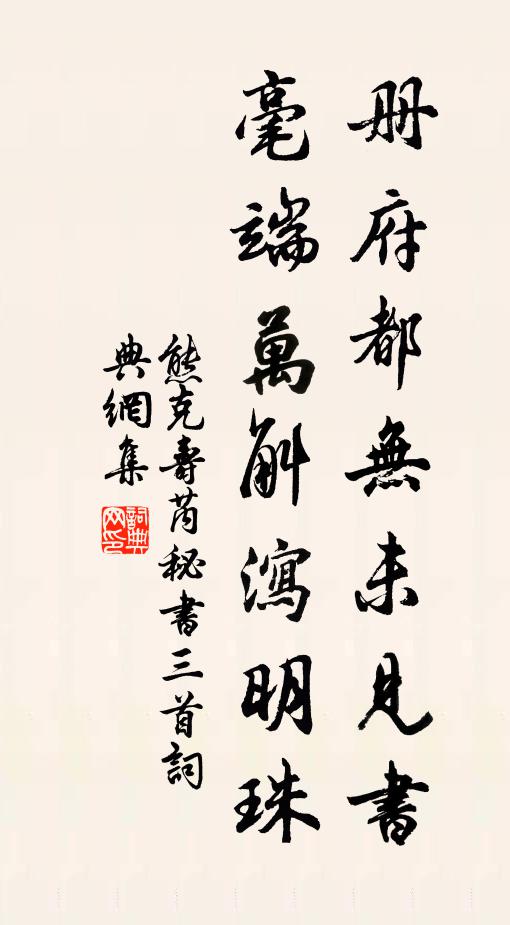 册府都無未見書
毫端萬斛瀉明珠
熊克壽芮秘書三首詞
典網集
詞典網印